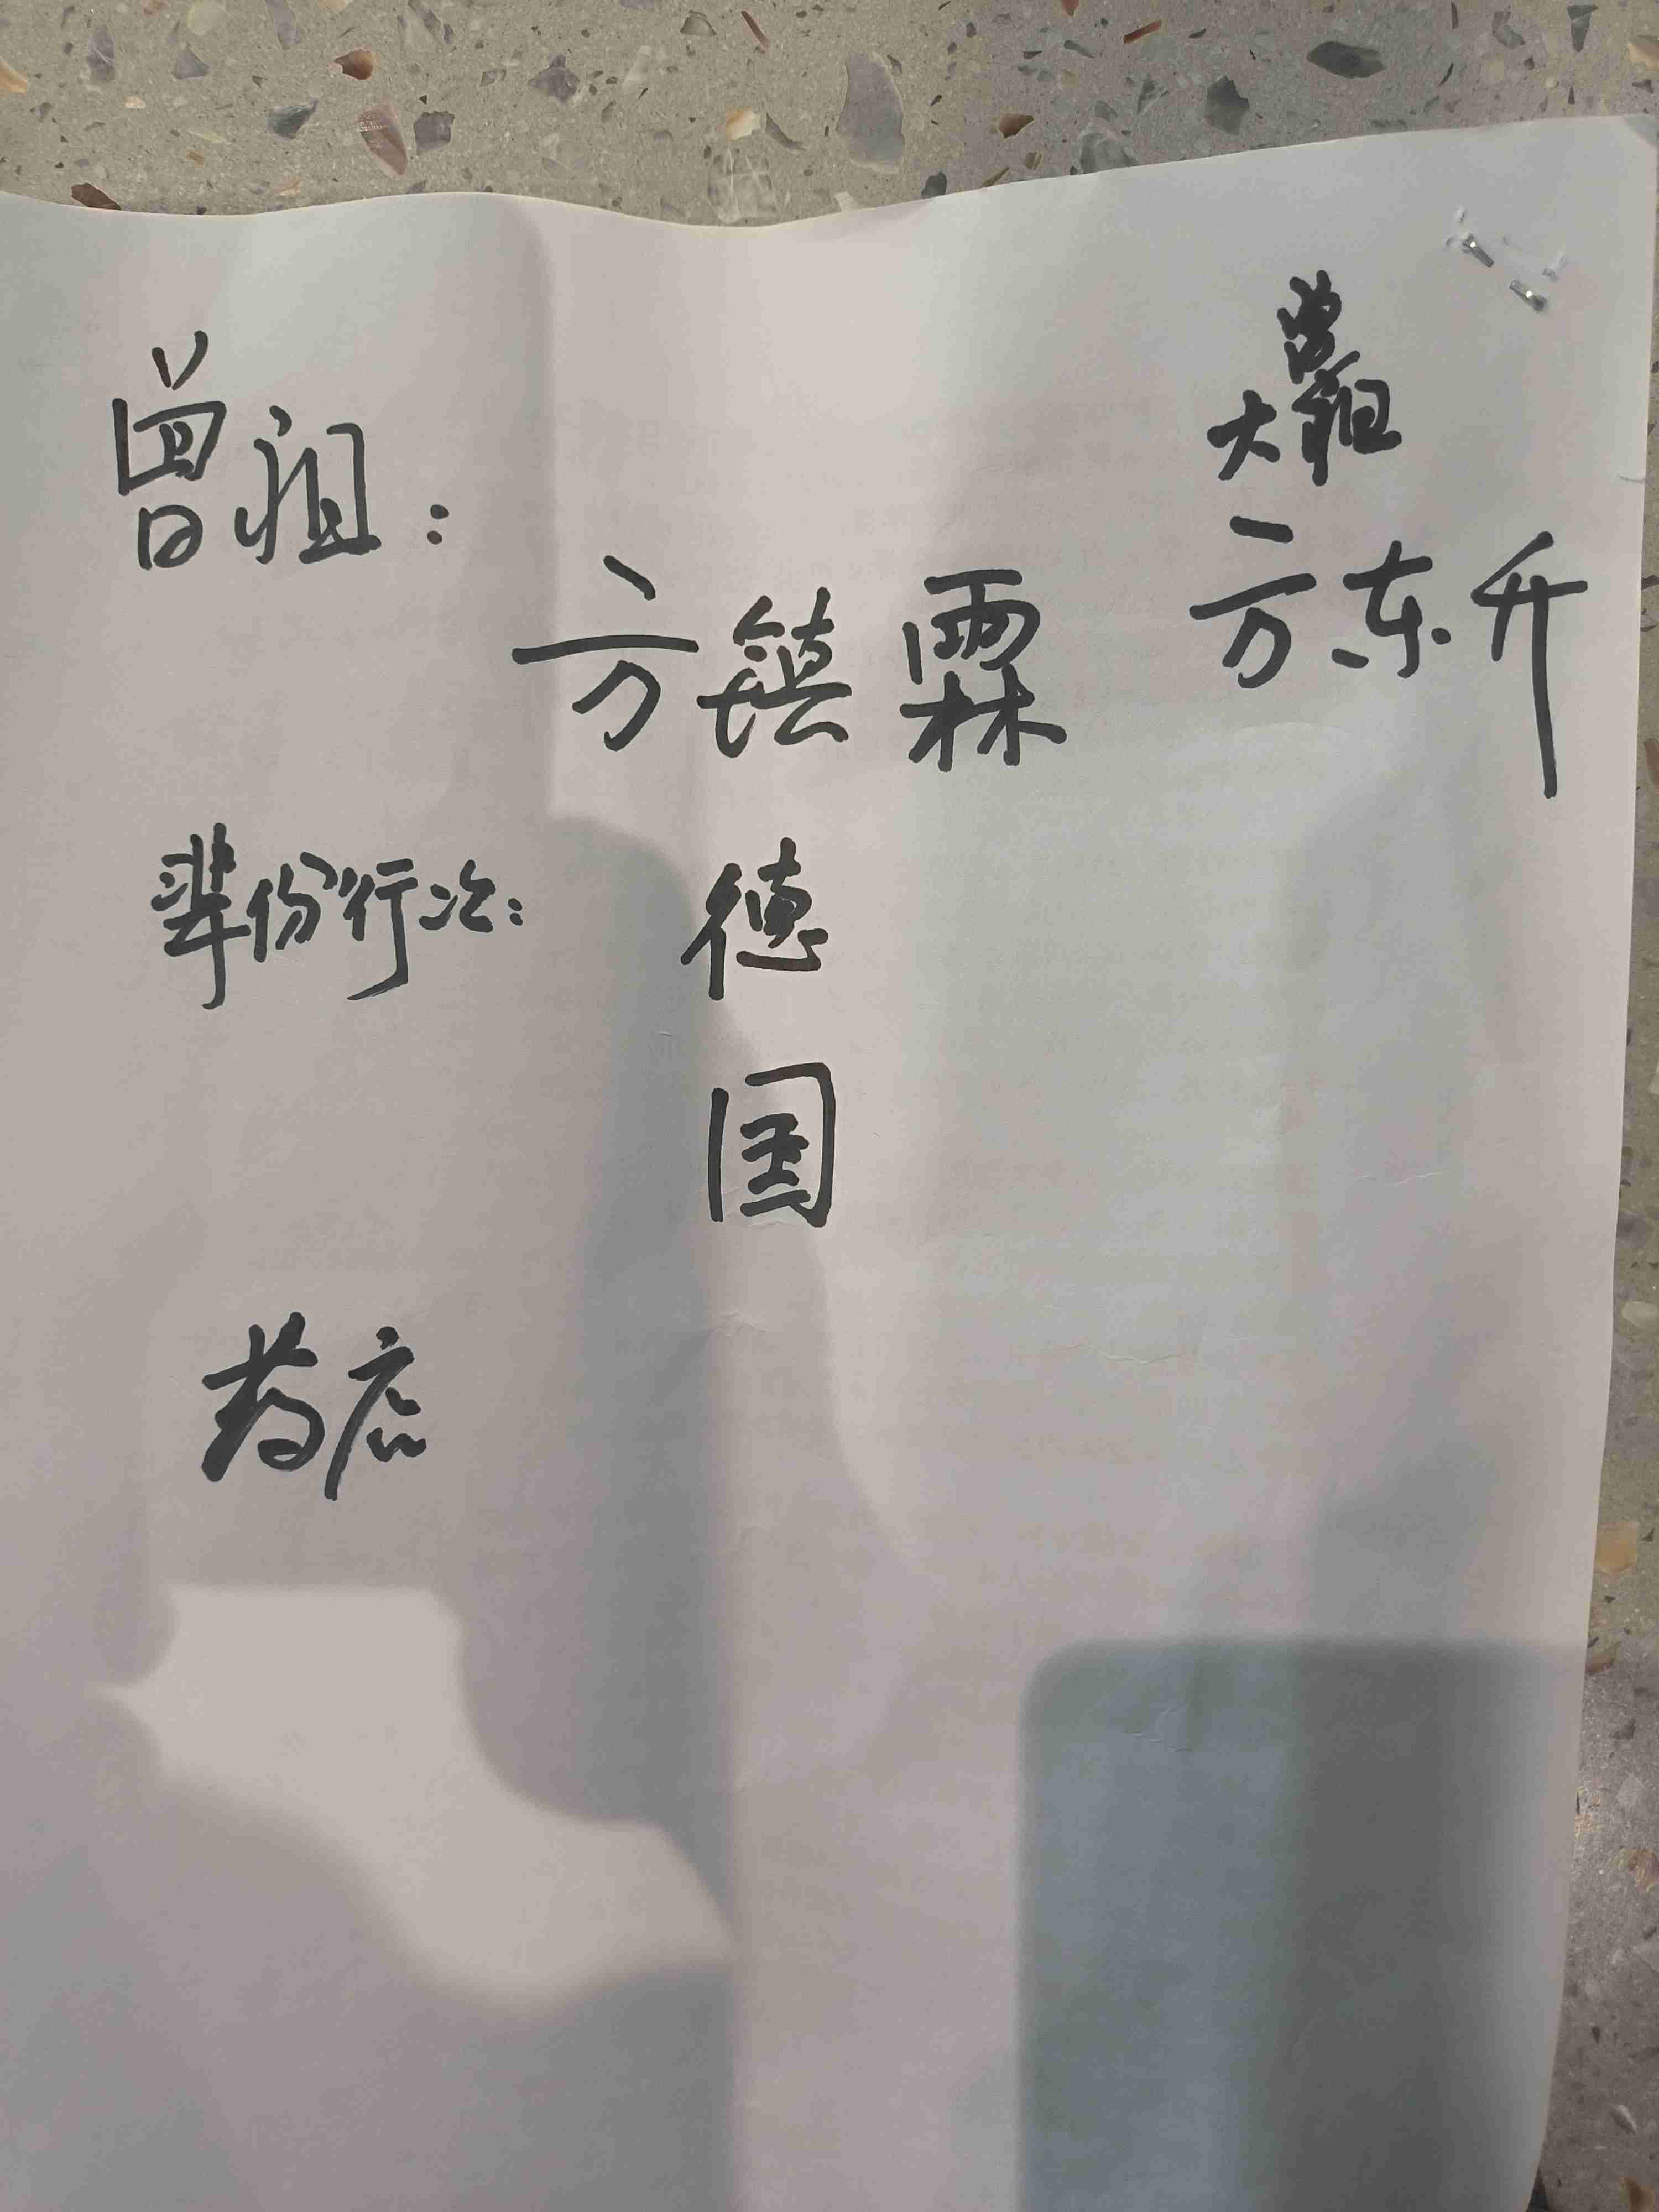 曾祖：
方镇霖
大曾祖
方东升
辈份行次：
德
国
药店